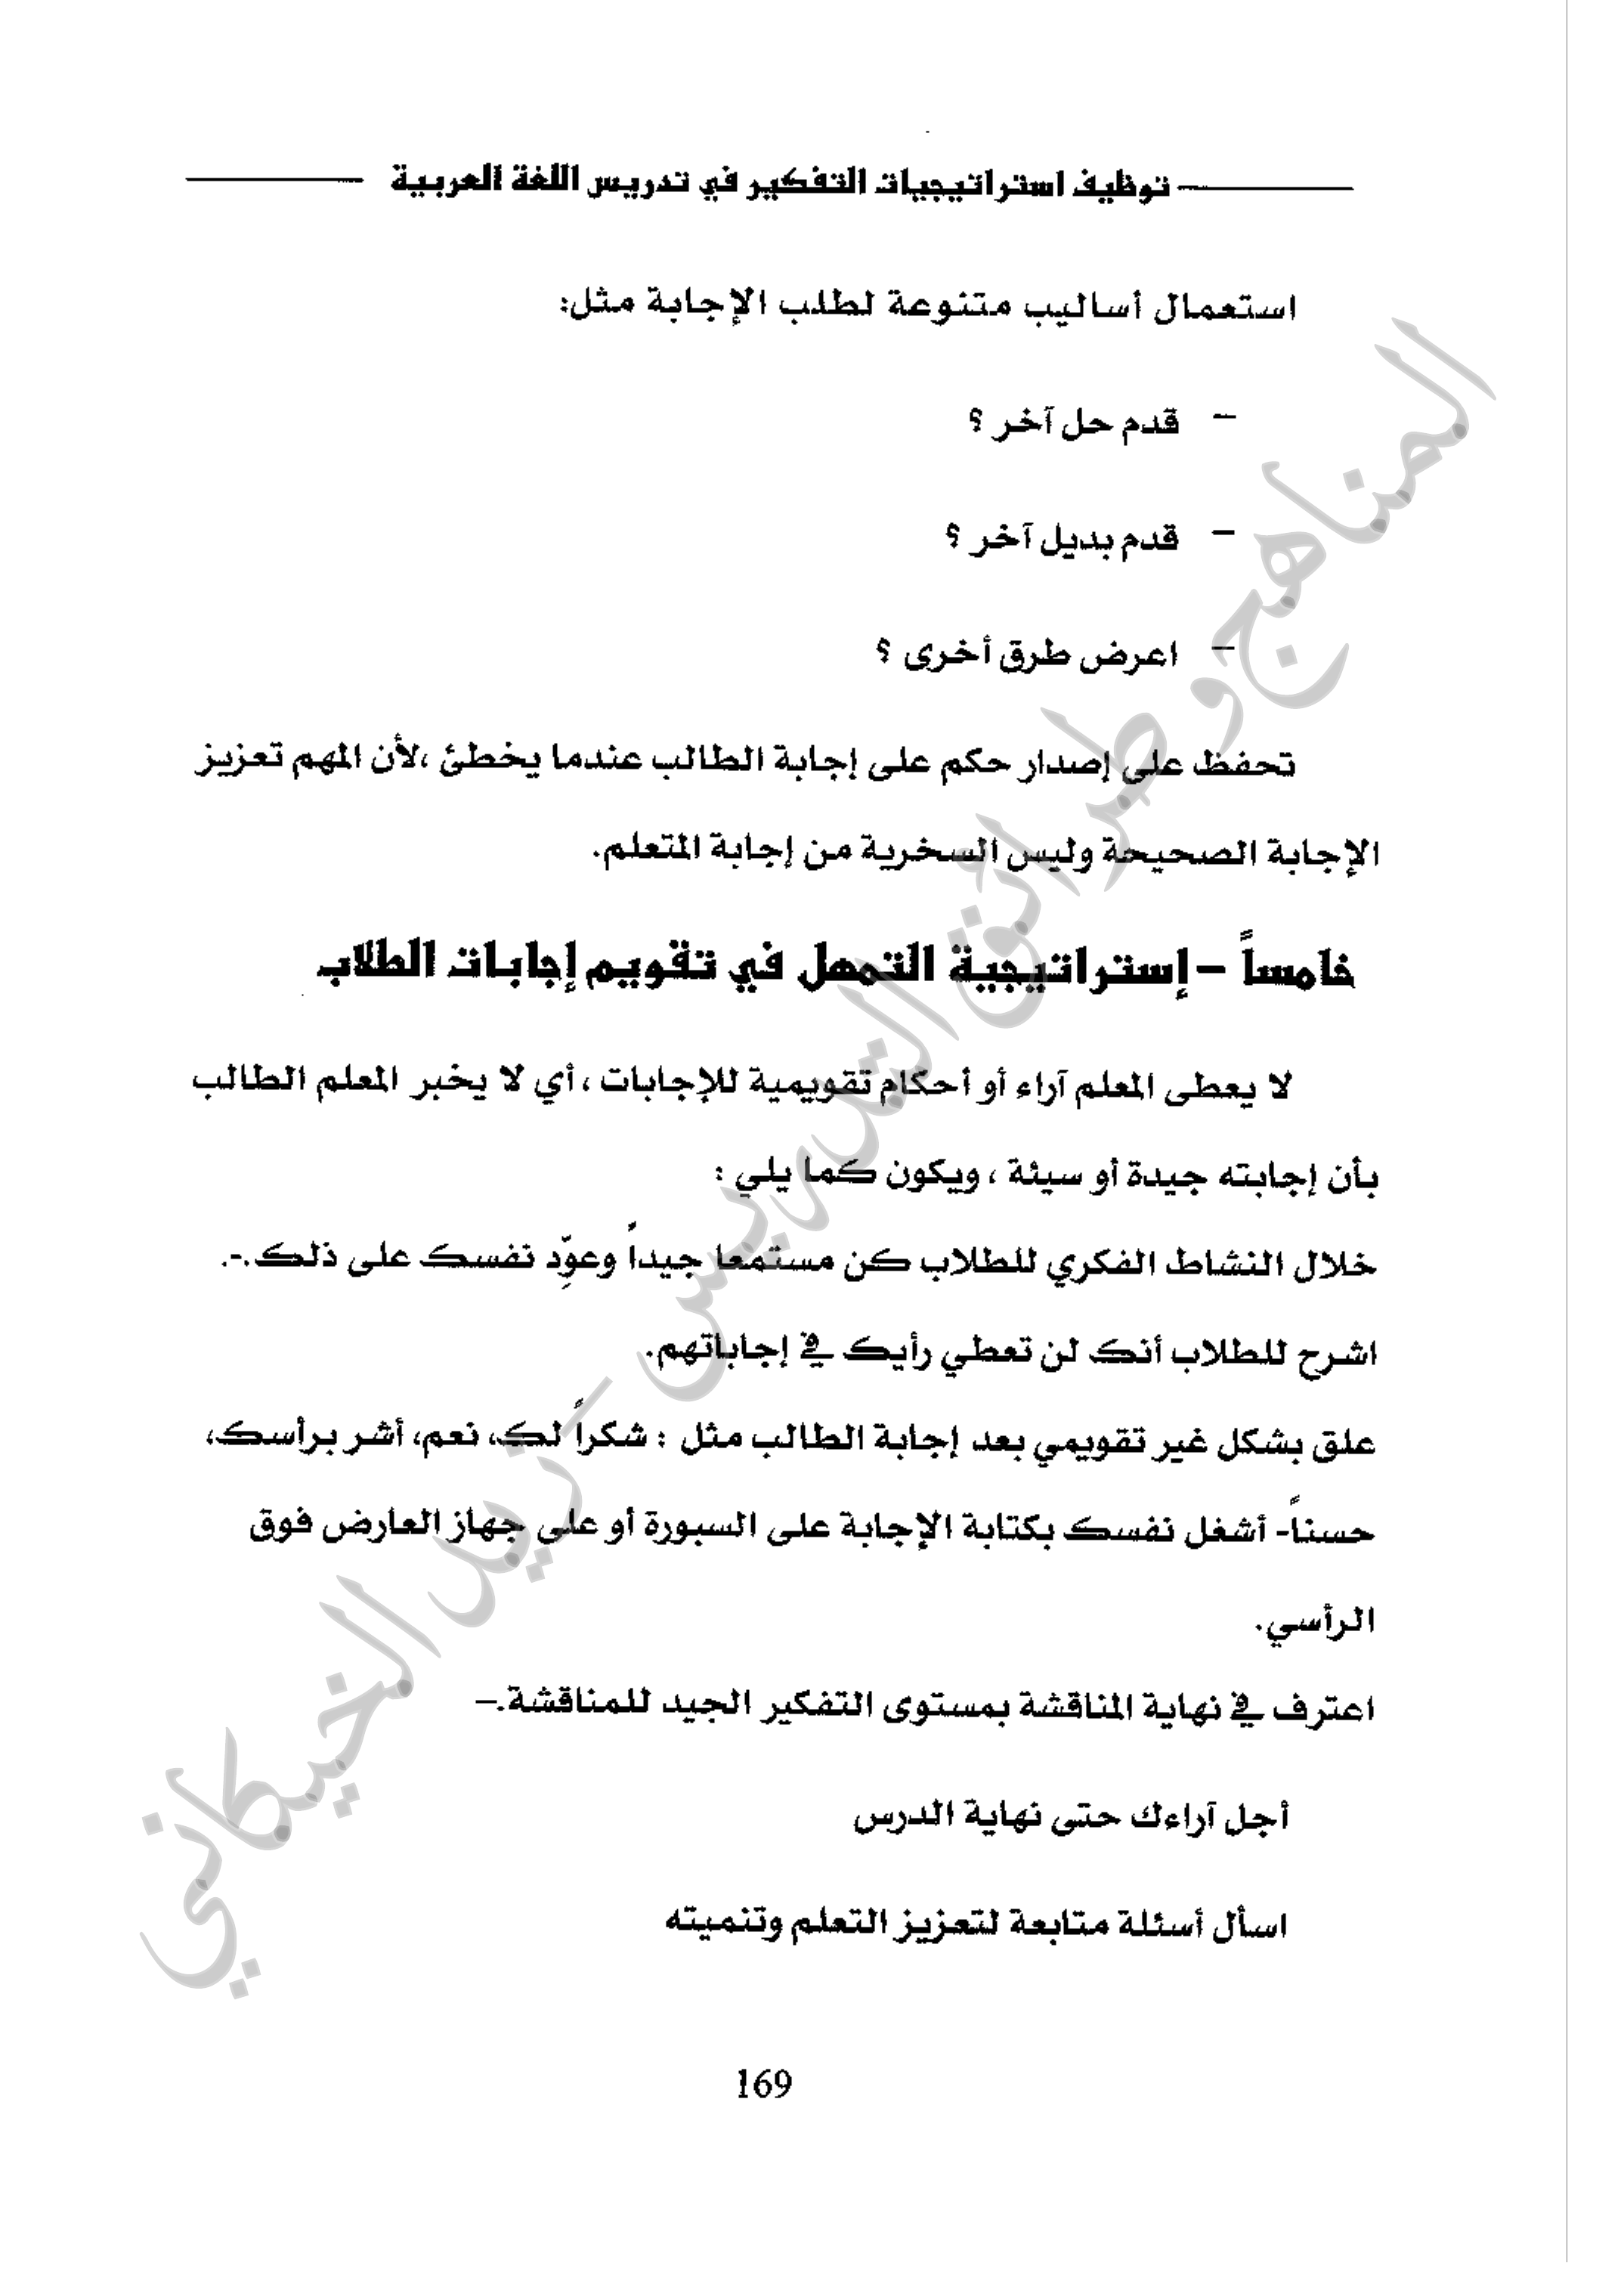 توظيف استراتيجيات التفكير في تدريس اللغة العربية
استعمال أساليب متنوعة لطلب الإجابة مثل:
– قدم حل آخر ؟
– قدم بديل آخر ؟
– اعرض طرق أخرى ؟
تحفظ على إصدار حكم على إجابة الطالب عندما يخطئ ،لأن المهم تعزيز
الإجابة الصحيحة وليس السخرية من إجابة المتعلم.
خامساً – إستراتيجية التمهل في تقويم إجابات الطلاب
لا يعطى المعلم آراء أو أحكام تقويمية للإجابات ، أي لا يخبر المعلم الطالب
بأن إجابته جيدة أو سيئة ، ويكون كما يلي :
خلال النشاط الفكري للطلاب كن مستمعا جيداً وعوِّد نفسك على ذلك.-.
اشرح للطلاب أنك لن تعطي رأيك في إجاباتهم.
علق بشكل غير تقويمي بعد إجابة الطالب مثل : شكراً لك، نعم، أشر برأسك،
حسناً- أشغل نفسك بكتابة الإجابة على السبورة أو على جهاز العارض فوق
الرأسي.
اعترف في نهاية المناقشة بمستوى التفكير الجيد للمناقشة.–
أجل آراءك حتى نهاية الدرس
اسأل أسئلة متابعة لتعزيز التعلم وتنميته
169
المناهج و طرائق التدريس – زيد الخيكاني